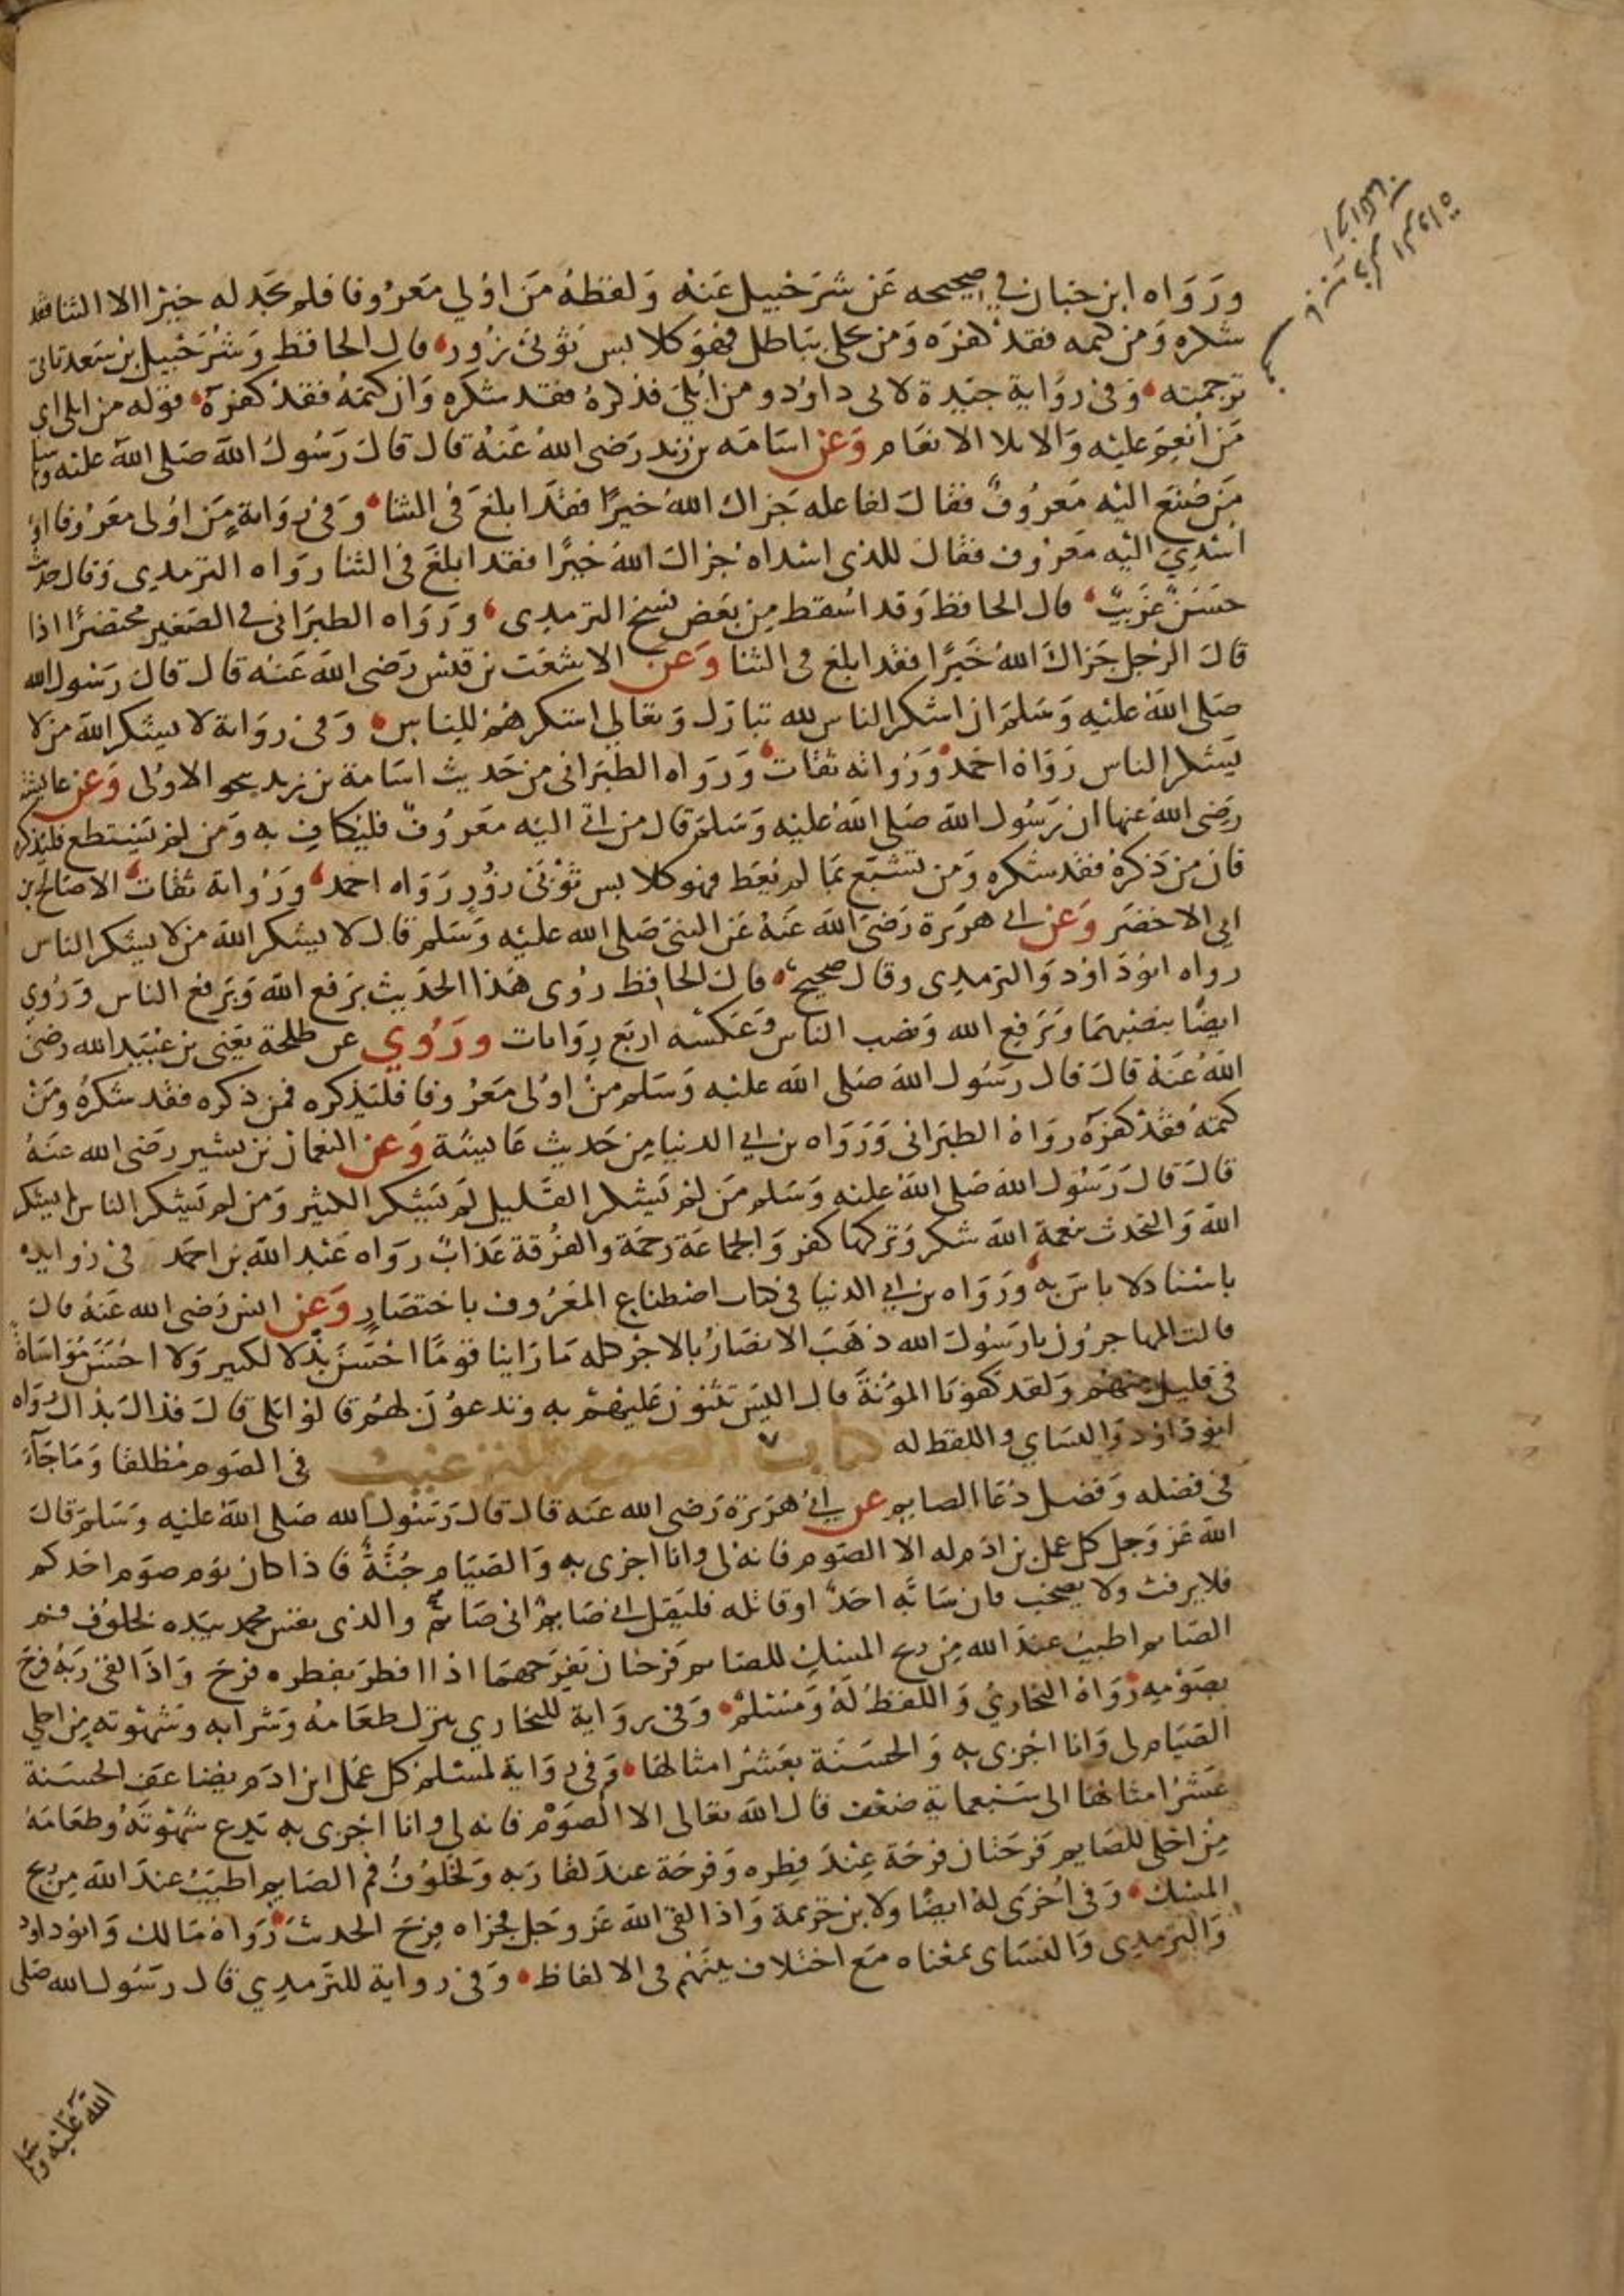 ورواه ابن حبان في صحيحه عن شرحبيل عنه ولفظه من اولي معروفا فلم يجد له خيرا الا الثنا فقد
شكره ومن كتمه فقد كفره ومن تحلى بباطل فهو كلابس ثوبي زور قال الحافظ وشرحبيل بن سعد تاتي
ترجمته وفي رواية جيدة لابي داود ومن ابلي فذكره فقد شكره وان كتمه فقد كفره قوله من ابلي اي
من انعم عليه والابلا الانعام وعن اسامه بن زيد رضي الله عنه قال قال رسول الله صلى الله عليه وسلم
من صنع اليه معروف فقال لفاعله جزاك الله خيرا فقد ابلغ في الثنا وفي رواية من اولي معروفا او
اسدي اليه معروف فقال للذي اسداه جزاك الله خيرا فقد ابلغ في الثنا رواه الترمدي وقال حديث
حسن غريب قال الحافظ وقد اسقط من بعض نسخ الترمدي ورواه الطبراني في الصغير مختصرا اذا
قال الرجل جزاك الله خيرا فقد ابلغ في الثنا وعن الاشعث بن قيس رضي الله عنه قال قال رسول الله
صلى الله عليه وسلم ان اشكر الناس لله تبارك وتعالي اشكرهم للناس وفي رواية لا يشكر الله من لا
يشكر الناس رواه احمد ورواته ثقات ورواه الطبراني من حديث اسامة بن زيد بنحو الاولى وعن عايشة
رضي الله عنها ان رسول الله صلى الله عليه وسلم قال من اتي اليه معروف فليكاف به ومن لم يستطع فليذكره
فان من ذكره فقد شكره ومن تشبع بما لم يعط فهو كلابس ثوبي زور رواه احمد ورواته ثقات الا صالح بن
ابي الاخضر وعن ابي هريرة رضي الله عنه عن النبي صلى الله عليه وسلم قال لا يشكر الله من لا يشكر الناس
رواه ابو داود والترمدي وقال صحيح قال الحافظ روى هذا الحديث برفع الله وبرفع الناس وروي
ايضا بنصبهما وبرفع الله ونصب الناس وعكسه اربع روايات وروي عن طلحة يعني بن عبيد الله رضي
الله عنه قال قال رسول الله صلى الله عليه وسلم من اولى معروفا فليذكره فمن ذكره فقد شكره ومن
كتمه فقد كفره رواه الطبراني ورواه بن ابي الدنيا من حديث عايشة وعن النعمان بن بشير رضي الله عنه
قال قال رسول الله صلى الله عليه وسلم من لم يشكر القليل لم يشكر الكثير ومن لم يشكر الناس لم يشكر
الله والتحدث بنعمة الله شكر وتركها كفر والجماعة رحمة والفرقة عذاب رواه عبد الله بن احمد في زوايده
باسناد لا باس به ورواه بن ابي الدنيا في كتاب اصطناع المعروف باختصار وعن انس رضي الله عنه قال
قالت المهاجرون يا رسول الله ذهب الانصار بالاجر كله ما راينا قوما احسن بذلا لكثير ولا احسن مواساة
في قليل منهم ولقد كفونا المؤنة قال اليس تثنون عليهم به وتدعون لهم قالوا بلى قال فذاك بذاك رواه
ابو داود والنساي واللفظ له كتاب الصوم الترغيب في الصوم مطلقا وما جآء
في فضله وفضل دعا الصايم عن ابي هريرة رضي الله عنه قال قال رسول الله صلى الله عليه وسلم قال
الله عز وجل كل عمل بن ادم له الا الصوم فانه لى وانا اجزى به والصيام جنة فاذا كان يوم صوم احدكم
فلا يرفث ولا يصخب فان سابه احد او قاتله فليقل اني صايم اني صايم والذى نفس محمد بيده لخلوف فم
الصايم اطيب عند الله من ريح المسك للصايم فرحتان يفرحهما اذا افطر بفطره فرح واذا لقى ربه فرح
بصومه رواه البخاري واللفظ له ومسلم وفي رواية للبخاري يترك طعامه وشرابه وشهوته من اجلي
الصيام لى وانا اجزى به والحسنة بعشر امثالها وفي رواية لمسلم كل عمل ابن ادم يضاعف الحسنة
عشر امثالها الى سبعماية ضعف قال الله تعالى الا الصوم فانه لي وانا اجزى به يدع شهوته وطعامه
من اجلي للصايم فرحتان فرحة عند فطره وفرحة عند لقا ربه ولخلوف فم الصايم اطيب عند الله من ريح
المسك وفي اخرى له ايضا ولابن خزيمة واذا لقى الله عز وجل فجزاه فرح الحديث رواه مالك وابو داود
والترمدي والنساى بمعناه مع اختلاف بينهم في الالفاظ وفي رواية للترمدي قال رسول الله صلى
الله عليه وسلم